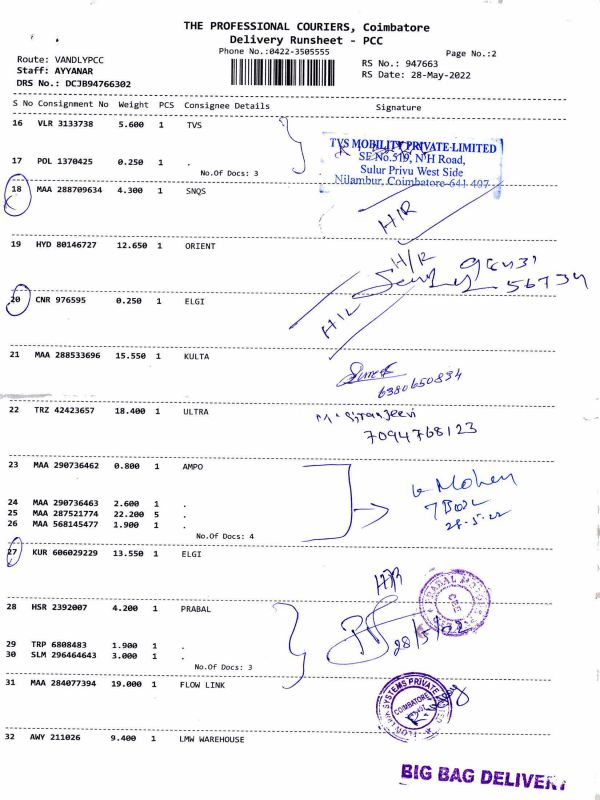 THE PROFESSIONAL COURIERS, Coimbatore
Delivery Runsheet - PCC
Phone No.:0422-3505555
Page No.:2
Route: VANDLYPCC
RS No.: 947663
Staff: AYYANAR
RS Date: 28-May-2022
DRS No.: DCJB94766302
S No Consignment No Weight PCS Consignee Details Signature
16 VLR 3133738 5.600 1 TVS
TVS MOBILITY PRIVATE LIMITED
SF.No.519, N H Road,
17 POL 1370425 0.250 1 .
Sulur Privu West Side
No.Of Docs: 3
Nilambur, Coimbatore-641 407
18 MAA 288709634 4.300 1 SNQS
H/R
19 HYD 80146727 12.650 1 ORIENT
H/R
56734
20 CNR 976595 0.250 1 ELGI
H/L
21 MAA 288533696 15.550 1 KULTA
Suresh
6380650834
22 TRZ 42423657 18.400 1 ULTRA
7094768123
23 MAA 290736462 0.800 1 AMPO
Mohan
24 MAA 290736463 2.600 1 .
25 MAA 287521774 22.200 5 .
26 MAA 568145477 1.900 1 .
28-5-22
No.Of Docs: 4
27 KUR 606029229 13.550 1 ELGI
H/R
28 HSR 2392007 4.200 1 PRABAL
28/5/22
29 TRP 6808483 1.900 1 .
30 SLM 296464643 3.000 1 .
No.Of Docs: 3
31 MAA 284077394 19.000 1 FLOW LINK
SYSTEMS PRIVATE
COIMBATORE
32 AWY 211026 9.400 1 LMW WAREHOUSE
BIG BAG DELIVERY